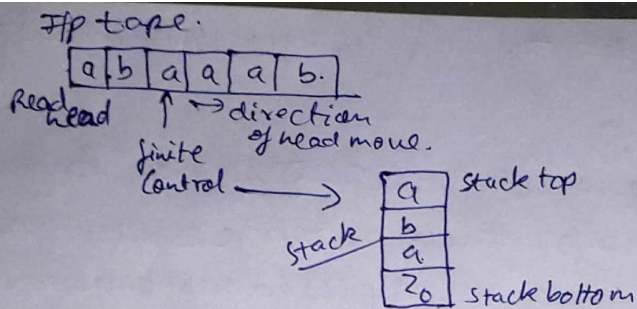 I/p tape.
a b a a a b.
Read head
→ direction of head move.
finite
Control
a stack top
stack
b
a
Z0 stack bottom